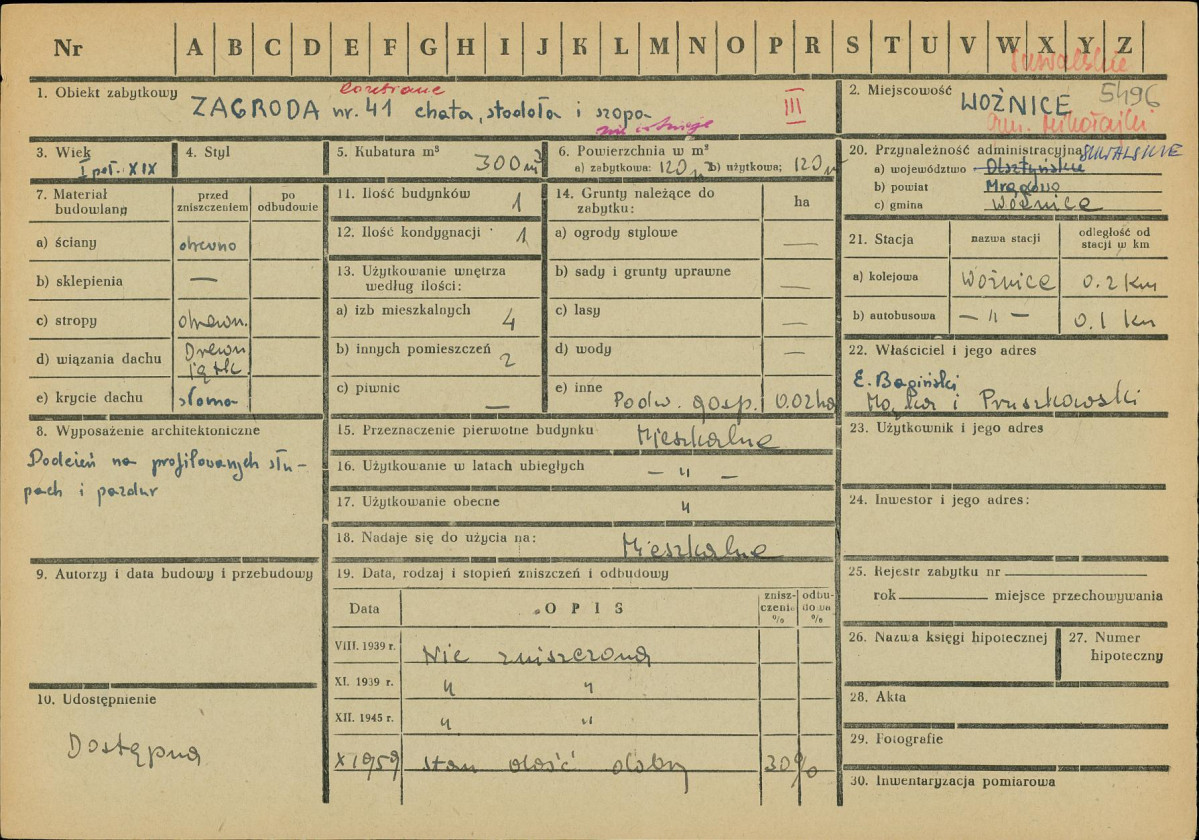 Nr A B C D E F G H I J K L M N O P R S T U V W X Y Z
suwalskie
1. Obiekt zabytkowy ZAGRODA nr. 41 chata, stodoła i szopa
rozebrane
nie istnieje
III
2. Miejscowość WOŹNICE 5496
gm. Mikołajki
3. Wiek
I poł. XIX
4. Styl
5. Kubatura m³ 300 m³
6. Powierzchnia w m²
a) zabytkowa: 120 m b) użytkowa; 120 m
7. Materiał budowlany
przed zniszczeniem
po odbudowie
a) ściany drewno
b) sklepienia —
c) stropy drewn.
d) wiązania dachu Drewn
e) krycie dachu słoma
8. Wyposażenie architektoniczne
Podcień na profilowanych słu-
pach i pazdur
9. Autorzy i data budowy i przebudowy
10. Udostępnienie
Dostępna
11. Ilość budynków 1
12. Ilość kondygnacji 1
13. Użytkowanie wnętrza
według ilości:
a) izb mieszkalnych 4
b) innych pomieszczeń 2
c) piwnic —
14. Grunty należące do
zabytku: ha
a) ogrody stylowe —
b) sady i grunty uprawne —
c) lasy —
d) wody —
e) inne Podw. gosp. 0.02 ha
15. Przeznaczenie pierwotne budynku Mieszkalne
16. Użytkowanie w latach ubiegłych — " —
17. Użytkowanie obecne "
18. Nadaje się do użycia na: Mieszkalne
19. Data, rodzaj i stopień zniszczeń i odbudowy
Data OPIS znisz-czenie % odbu-dowa %
VIII. 1939 r. Nie zniszczona
XI. 1939 r. " "
XII. 1945 r. " "
X 1959 stan dość dobry 30%
20. Przynależność administracyjna SUWALSKIE
a) województwo Olsztyńskie
b) powiat Mrągowo
c) gmina Woźnice
21. Stacja nazwa stacji odległość od stacji w km
a) kolejowa Woźnice 0.2 km
b) autobusowa — " — 0.1 km
22. Właściciel i jego adres
E. Bagiński
i Pruszkowski
23. Użytkownik i jego adres
24. Inwestor i jego adres:
25. Rejestr zabytku nr
rok miejsce przechowywania
26. Nazwa księgi hipotecznej
27. Numer
hipoteczny
28. Akta
29. Fotografie
30. Inwentaryzacja pomiarowa